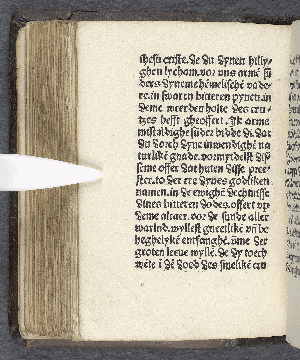 ihesu criste. de du dynen hilly-
ghen lycham. vor vns arme sū
ders dyneme hēmelischē vade-
re. in swaren bitteren pynen. in
deme werden holte des cru-
tzes hefft gheoffert. Ik arme
misdaldighe sūder bidde di dat
du dorch dyne inwendighē na
turlikē gnade. vormyddelst dis-
seme offer dat huten disse pree-
ster. to der ere dynes godliken
namen. in de ewighe dechtnisse
dines bitteren dodes. offert vp
deme altaer. vor de sunde aller
warlnd. wyllest gnetlikē vñ be
heghelykē entfanghē. ūme der
groten leeue wyllē. de dy toech
wēte i dē doed des smelikē cru